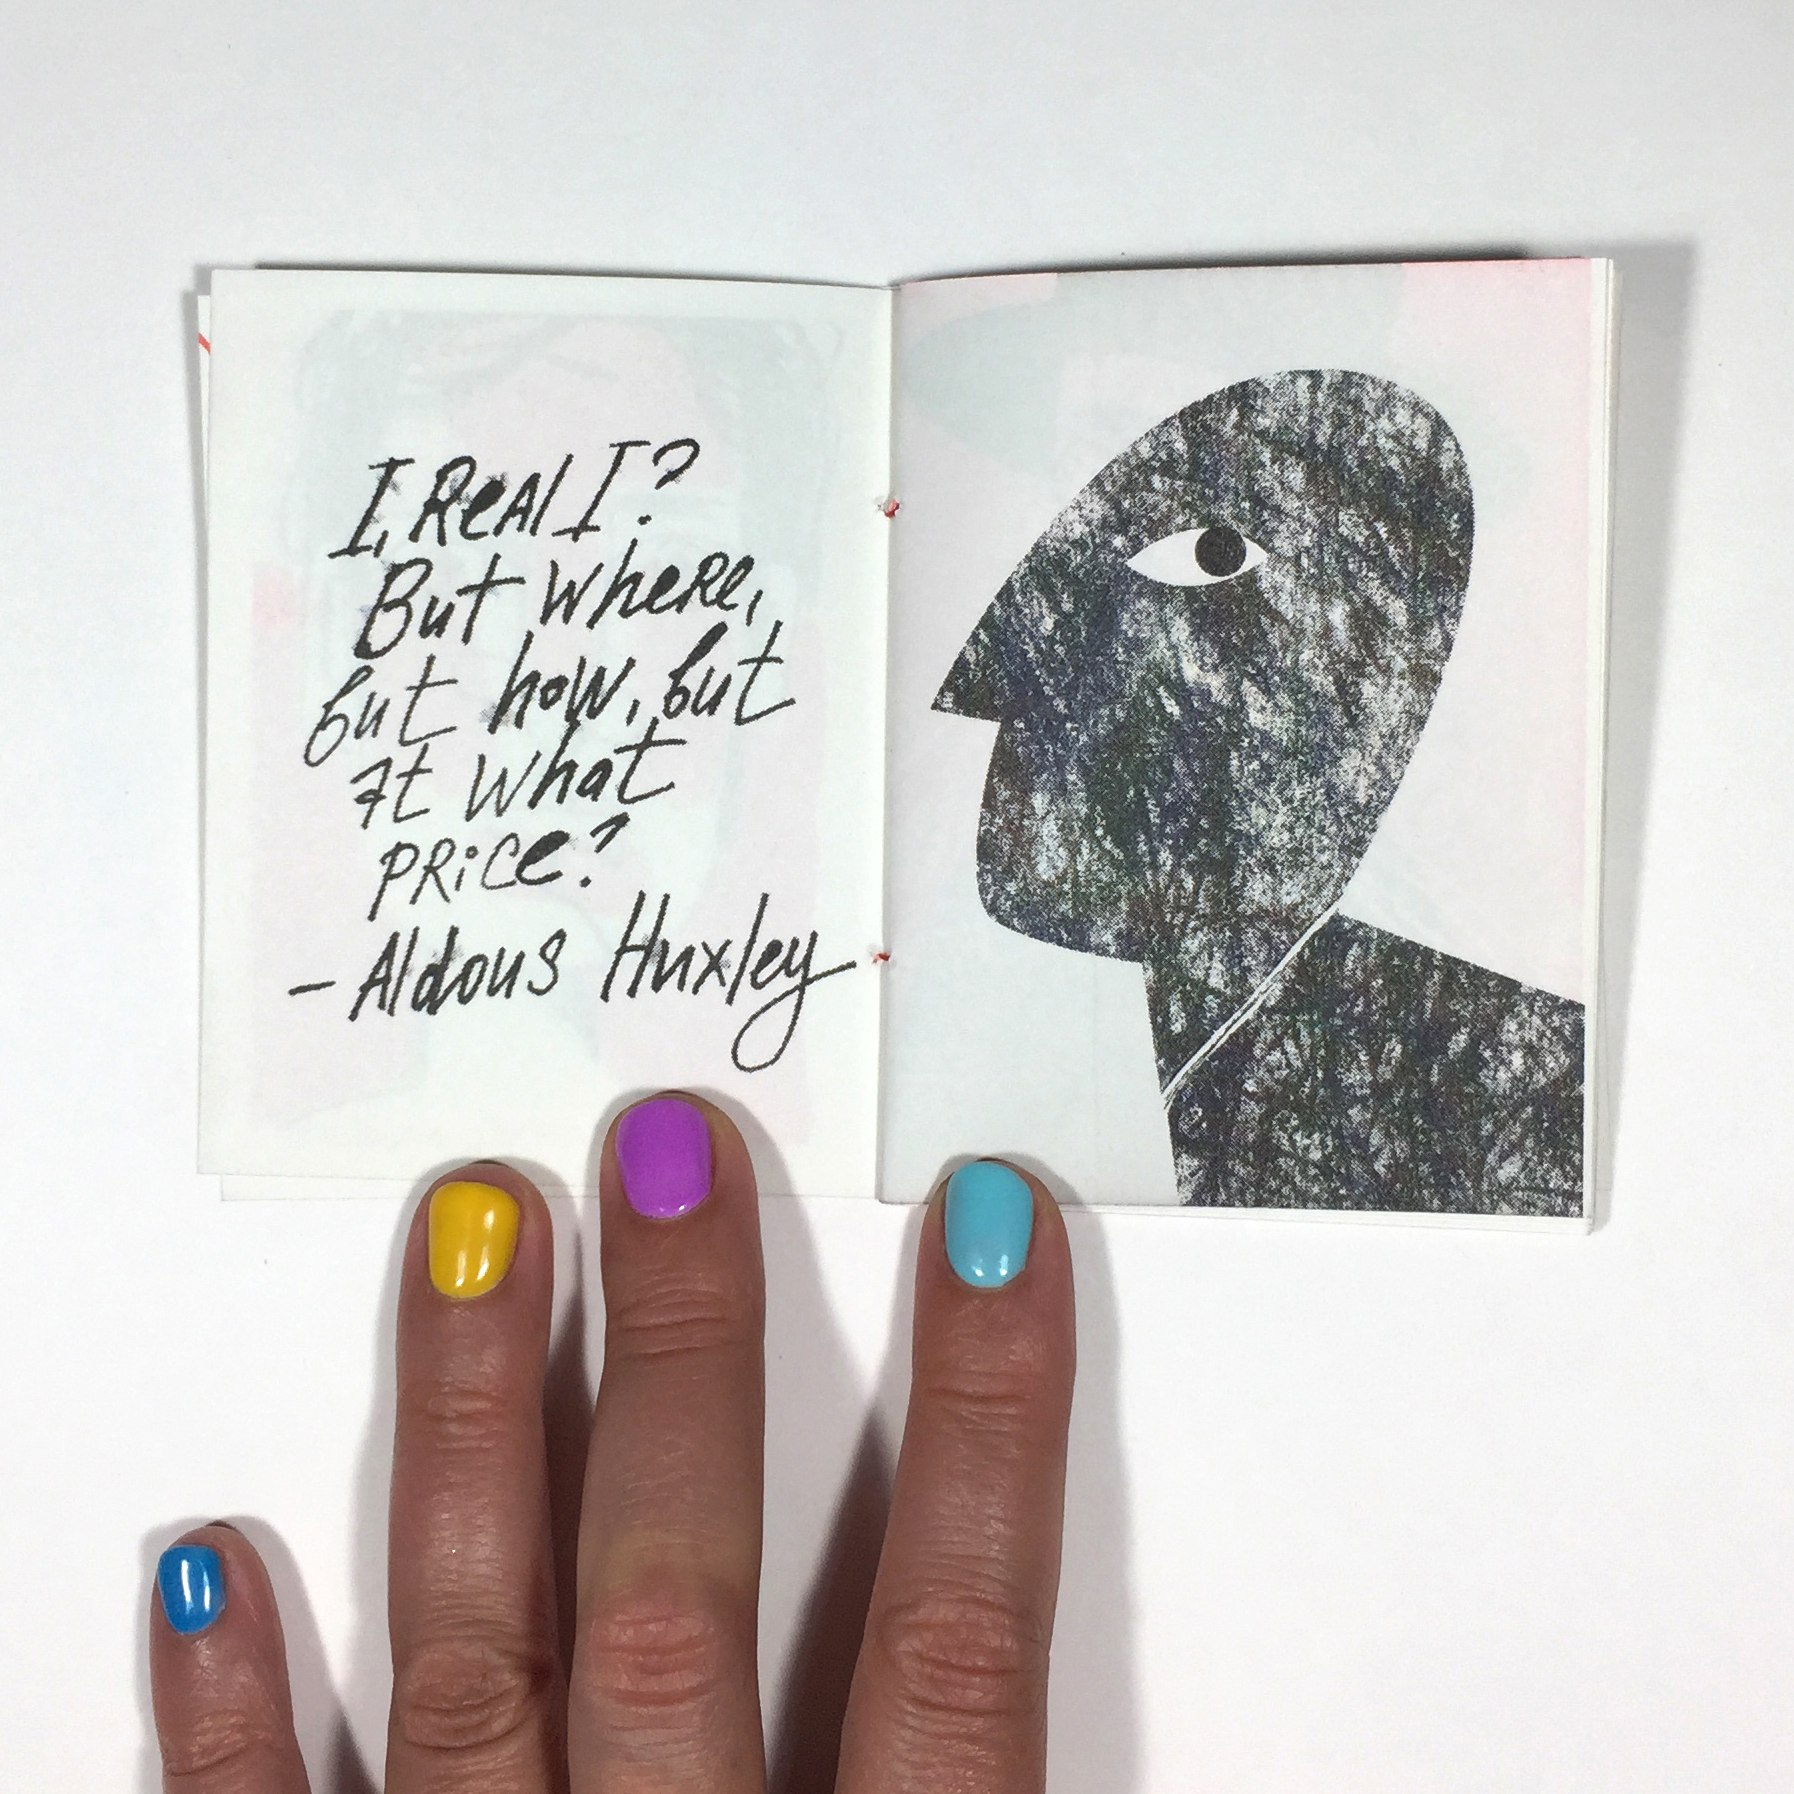 I, Real I?
But where,
but how, but
At what
price?
- Aldous Huxley